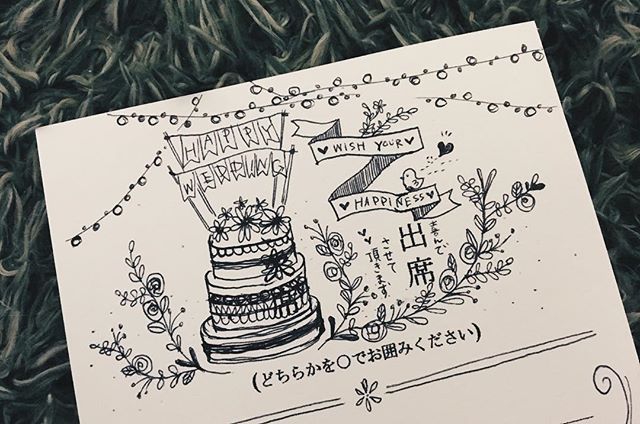 HAPPY
WEDDING
WISH YOUR
HAPPINESS
喜んで
出席
させて
頂きます
(どちらかを○でお囲みください)